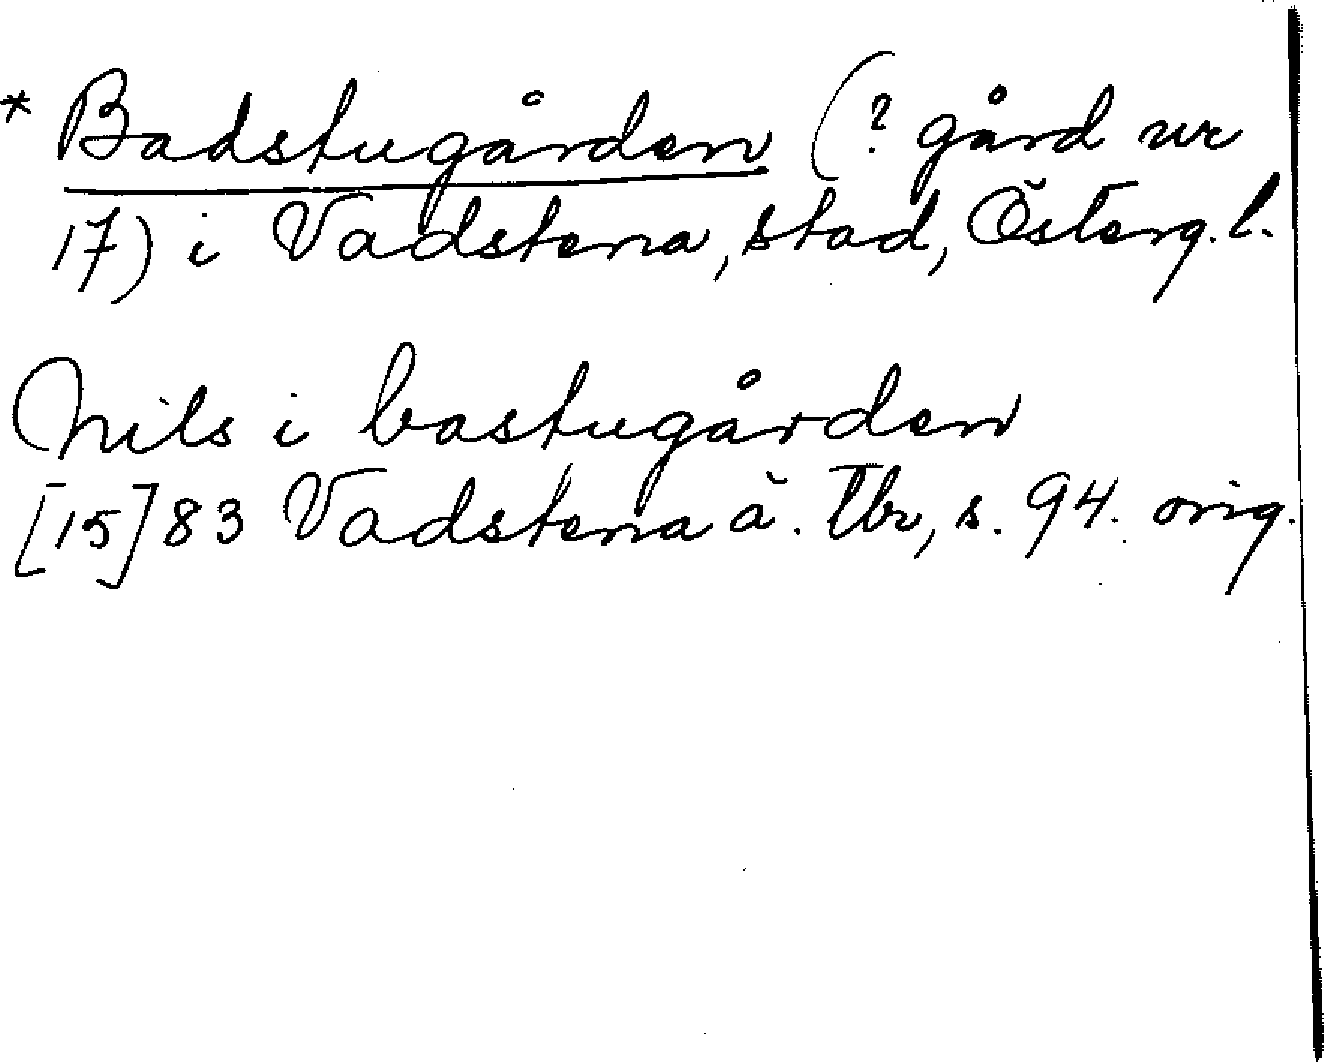 * Badstugården (? gård nr
17) i Vadstena, stad, Österg. l.
Nils i bastugården
[15]83 Vadstena ä. Tbr, s. 94. orig.